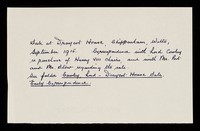 Sale at Draycot House, Chippenham, Wilts,
September 1920. Correspondence with Lord Cowley
re purchase of Henry VIII Chairs, and with Mr.
and Mr. regarding the sale.
See folder Cowley, Earl - Draycot House Sale
Early Correspondence.